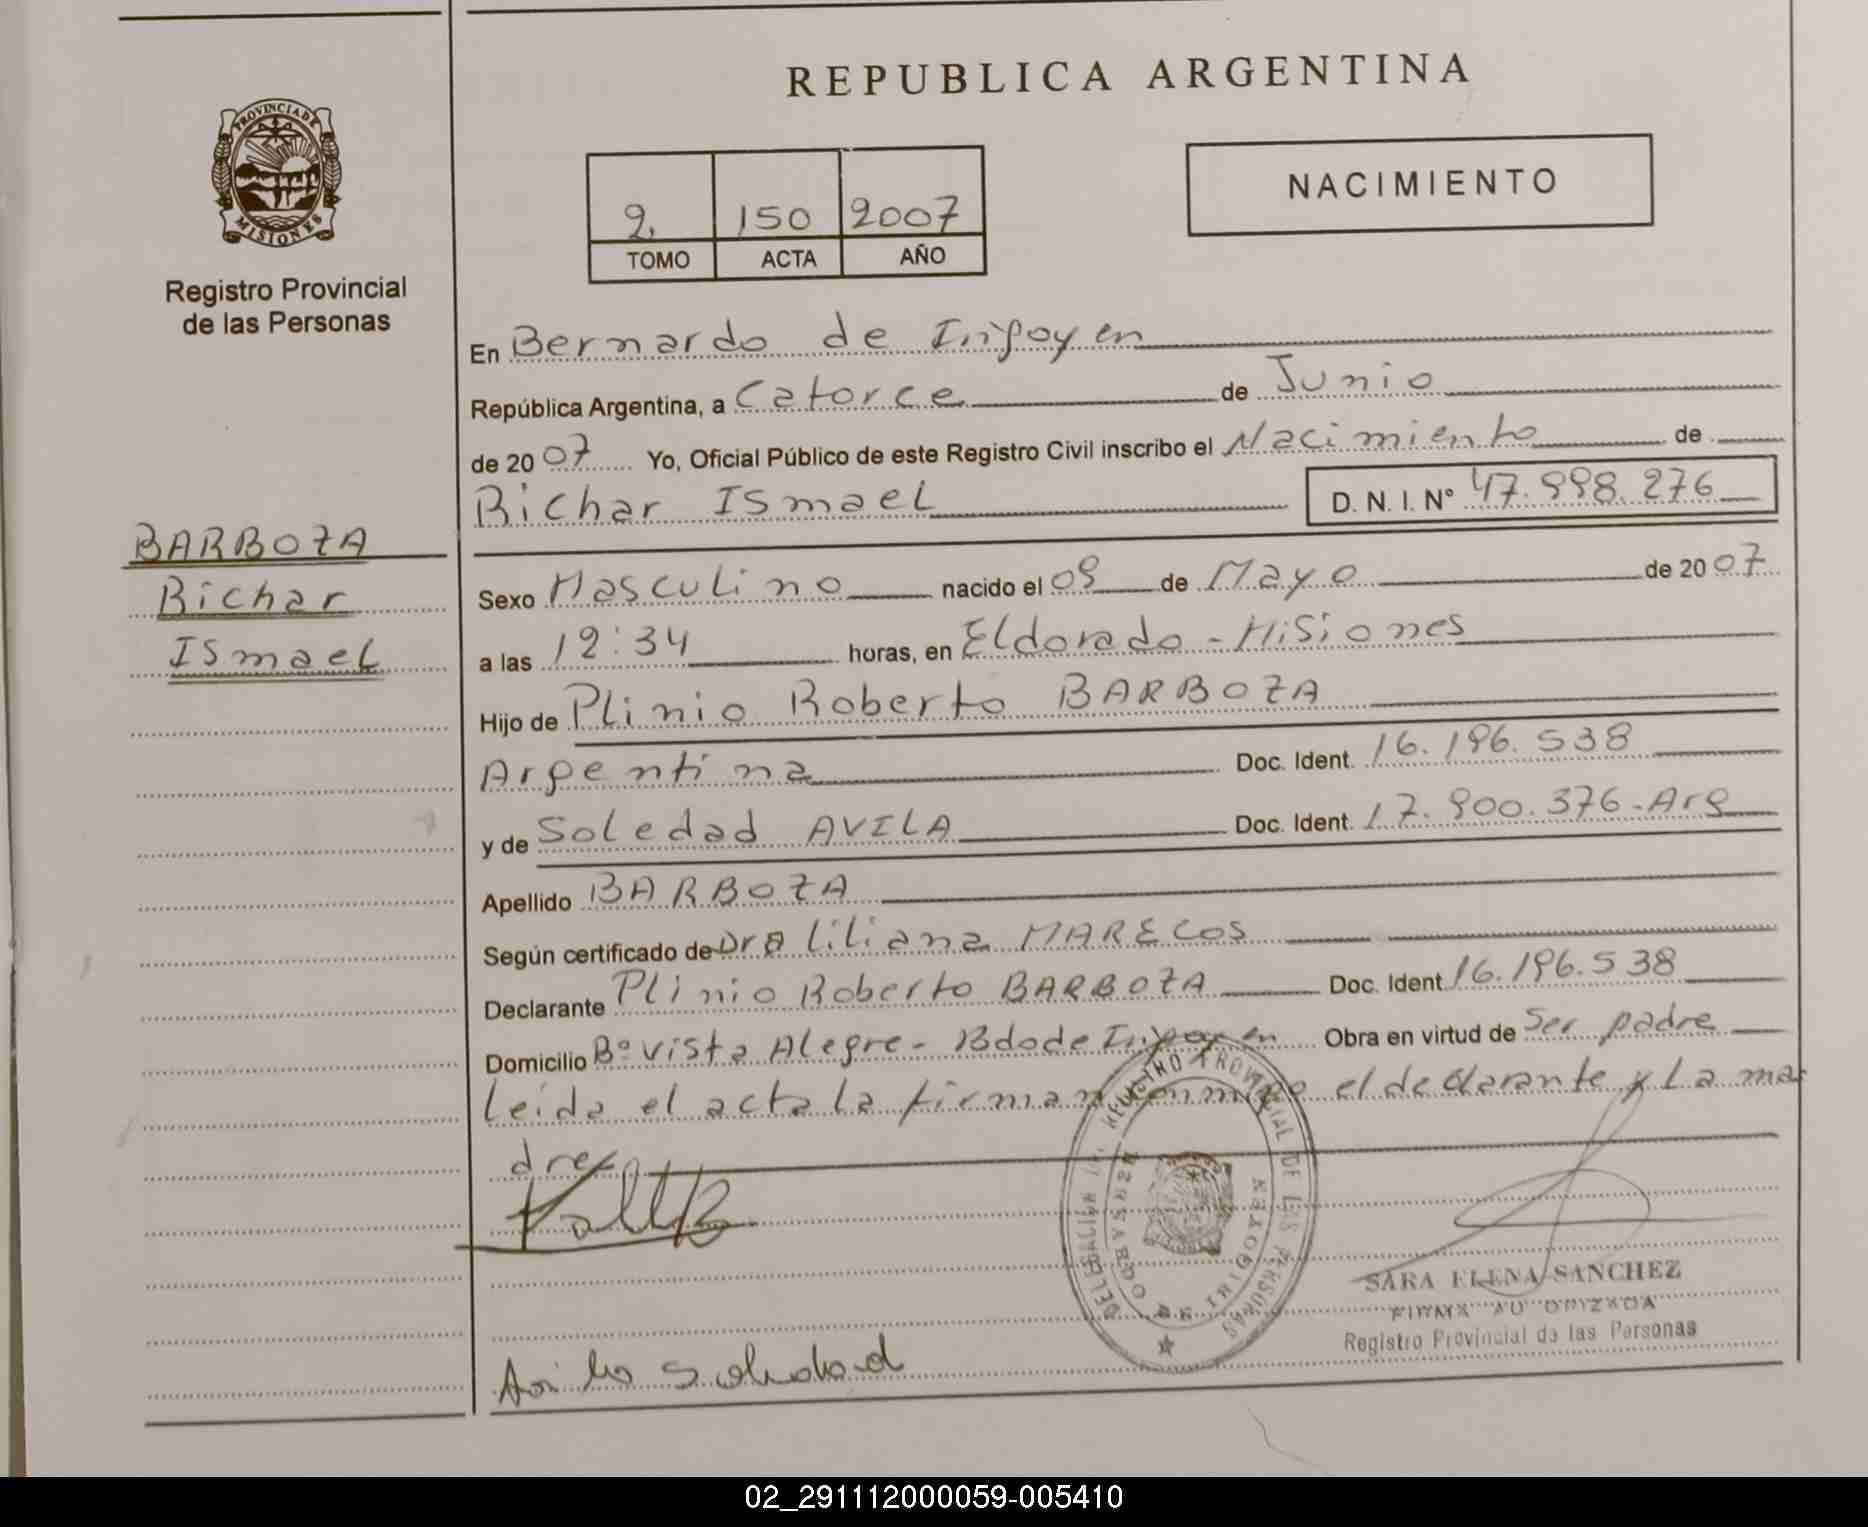 REPUBLICA ARGENTINA
PROVINCIA DE
MISIONES
Registro Provincial
de las Personas
NACIMIENTO
2 150 2007
TOMO ACTA AÑO
En Bernardo de Irigoyen
República Argentina, a Catorce de Junio
de 2007 Yo, Oficial Público de este Registro Civil inscribo el Nacimiento de
Richar Ismael D. N. I. N° 47.998.276
BARBOZA
Richar
Ismael
Sexo Masculino nacido el 09 de Mayo de 2007
a las 12:34 horas, en Eldorado - Misiones
Hijo de Plinio Roberto BARBOZA
Argentina Doc. Ident. 16.196.538
y de Soledad AVILA Doc. Ident. 17.900.376-Arg
Apellido BARBOZA
Según certificado de Dra Liliana MARECOS
Declarante Plinio Roberto BARBOZA Doc. Ident. 16.196.538
Domicilio B° Vista Alegre - Bdo de Irigoyen Obra en virtud de Ser padre
Leída el acta la firman conmigo el declarante y La ma
dre
SARA ELENA SANCHEZ
FIRMA AUTORIZADA
Registro Provincial de las Personas
REGISTRO PROVINCIAL DE LAS PERSONAS
DELEGACION
BERNARDO DE IRIGOYEN
Soledad
02_291112000059-005410